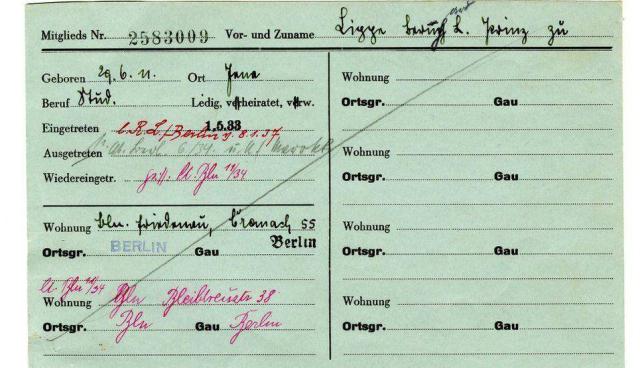 Mitglieds Nr. 2583009 Vor- und Zuname Lippe Prinz zu
Geboren 29.6.11. Ort Jena
Beruf Stud. Ledig, verheiratet, verw.
Eingetreten 1.5.33
l. R.L./Berlin v. 8.1.37
Ausgetreten
Wiedereingetr. 11/34
Wohnung Bln. Friedenau, Cranach 55
Ortsgr. BERLIN Gau Berlin
11/34
Wohnung Bln Bleibtreustr 38
Ortsgr. Bln Gau Berlin
Wohnung
Ortsgr. Gau
Wohnung
Ortsgr. Gau
Wohnung
Ortsgr. Gau
Wohnung
Ortsgr. Gau